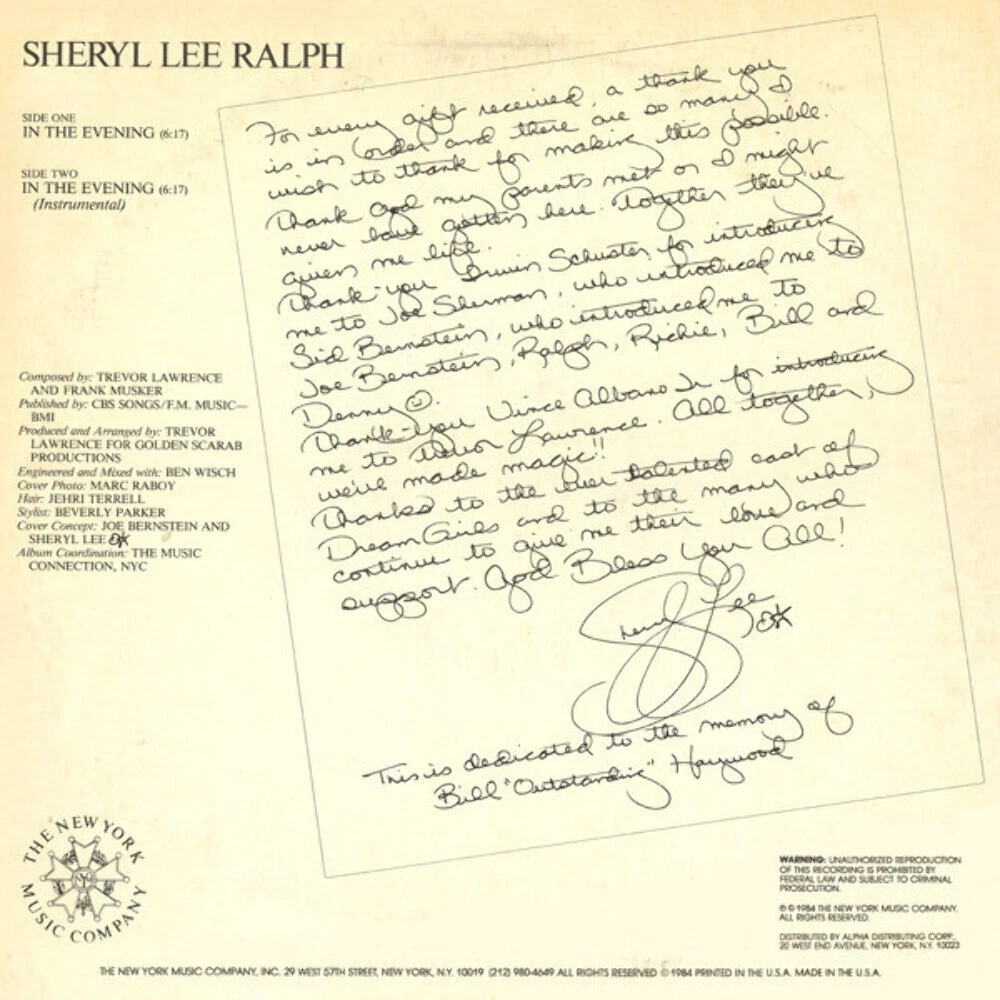 SHERYL LEE RALPH
SIDE ONE
IN THE EVENING (6:17)
SIDE TWO
IN THE EVENING (6:17)
(Instrumental)
For every gift received, a thank you
is in order and there are so many I
wish to thank for making this possible.
Thank God my parents met or I might
never have gotten here. Together they've
given me life.
Thank-you Irwin Schuster for introducing
me to Joe Sherman, who introduced me to
Sid Bernstein, who introduced me to
Joe Bernstein, Ralph, Richie, Bill and
Denny ☺.
Thank-you Vince Albano Jr for introducing
me to Trevor Lawrence. All together,
we've made magic!!
Thanks to the ever talented cast of
Dream Girls and to the many who
continue to give me their love and
support. God Bless You All!
Sheryl Lee
This is dedicated to the memory of
Bill "Outstanding" Haywood
Composed by: TREVOR LAWRENCE
AND FRANK MUSKER
Published by: CBS SONGS/F.M. MUSIC—
BMI
Produced and Arranged by: TREVOR
LAWRENCE FOR GOLDEN SCARAB
PRODUCTIONS
Engineered and Mixed with: BEN WISCH
Cover Photo: MARC RABOY
Hair: JEHRI TERRELL
Stylist: BEVERLY PARKER
Cover Concept: JOE BERNSTEIN AND
SHERYL LEE
Album Coordination: THE MUSIC
CONNECTION, NYC
THE NEW YORK
MUSIC COMPANY
WARNING: UNAUTHORIZED REPRODUCTION
OF THIS RECORDING IS PROHIBITED BY
FEDERAL LAW AND SUBJECT TO CRIMINAL
PROSECUTION.
℗ © 1984 THE NEW YORK MUSIC COMPANY.
ALL RIGHTS RESERVED.
DISTRIBUTED BY ALPHA DISTRIBUTING CORP.,
20 WEST END AVENUE, NEW YORK, N.Y. 10023
THE NEW YORK MUSIC COMPANY, INC. 29 WEST 57TH STREET, NEW YORK, N.Y. 10019 (212) 980-4649 ALL RIGHTS RESERVED © 1984 PRINTED IN THE U.S.A. MADE IN THE U.S.A.